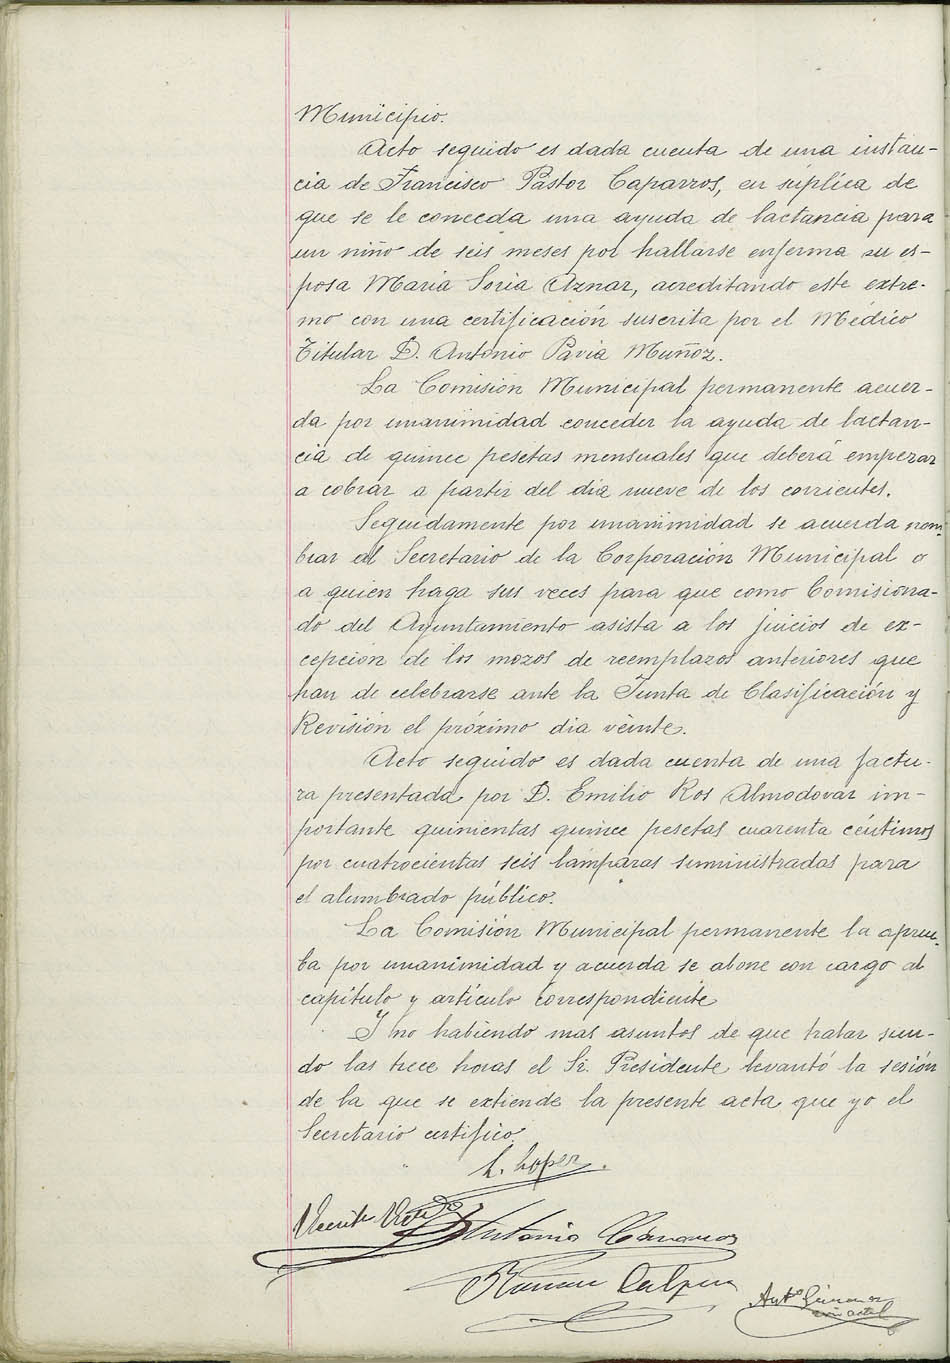 Municipio.
Acto seguido es dada cuenta de una instan-
cia de Francisco Pastor Caparros, en súplica de
que se le conceda una ayuda de lactancia para
un niño de seis meses por hallarse enferma su es-
posa Maria Soria Aznar, acreditando este extre-
mo con una certificación suscrita por el Médico
Titular D. Antonio Pavia Muñoz.
La Comisión Municipal permanente acuer-
da por unanimidad conceder la ayuda de lactan-
cia de quince pesetas mensuales que deberá empezar
a cobrar a partir del dia nueve de los corrientes.
Seguidamente por unanimidad se acuerda nom-
brar al Secretario de la Corporación Municipal o
a quien haga sus veces para que como Comisiona-
do del Ayuntamiento asista a los juicios de ex-
cepción de los mozos de reemplazos anteriores que
han de celebrarse ante la Junta de Clasificación y
Revisión el próximo dia veinte.
Acto seguido es dada cuenta de una factu-
ra presentada por D. Emilio Ros Almodovar im-
portante quinientas quince pesetas cuarenta céntimos
por cuatrocientas seis lámparas suministradas para
el alumbrado público.
La Comisión Municipal permanente la aprue-
ba por unanimidad y acuerda se abone con cargo al
capitulo y articulo correspondiente
Y no habiendo mas asuntos de que tratar sien-
do las trece horas el Sr. Presidente levantó la sesión
de la que se extiende la presente acta que yo el
Secretario certifico.
L. Lopez.
Vicente
Antonio Cánovas
Ramon
Antº